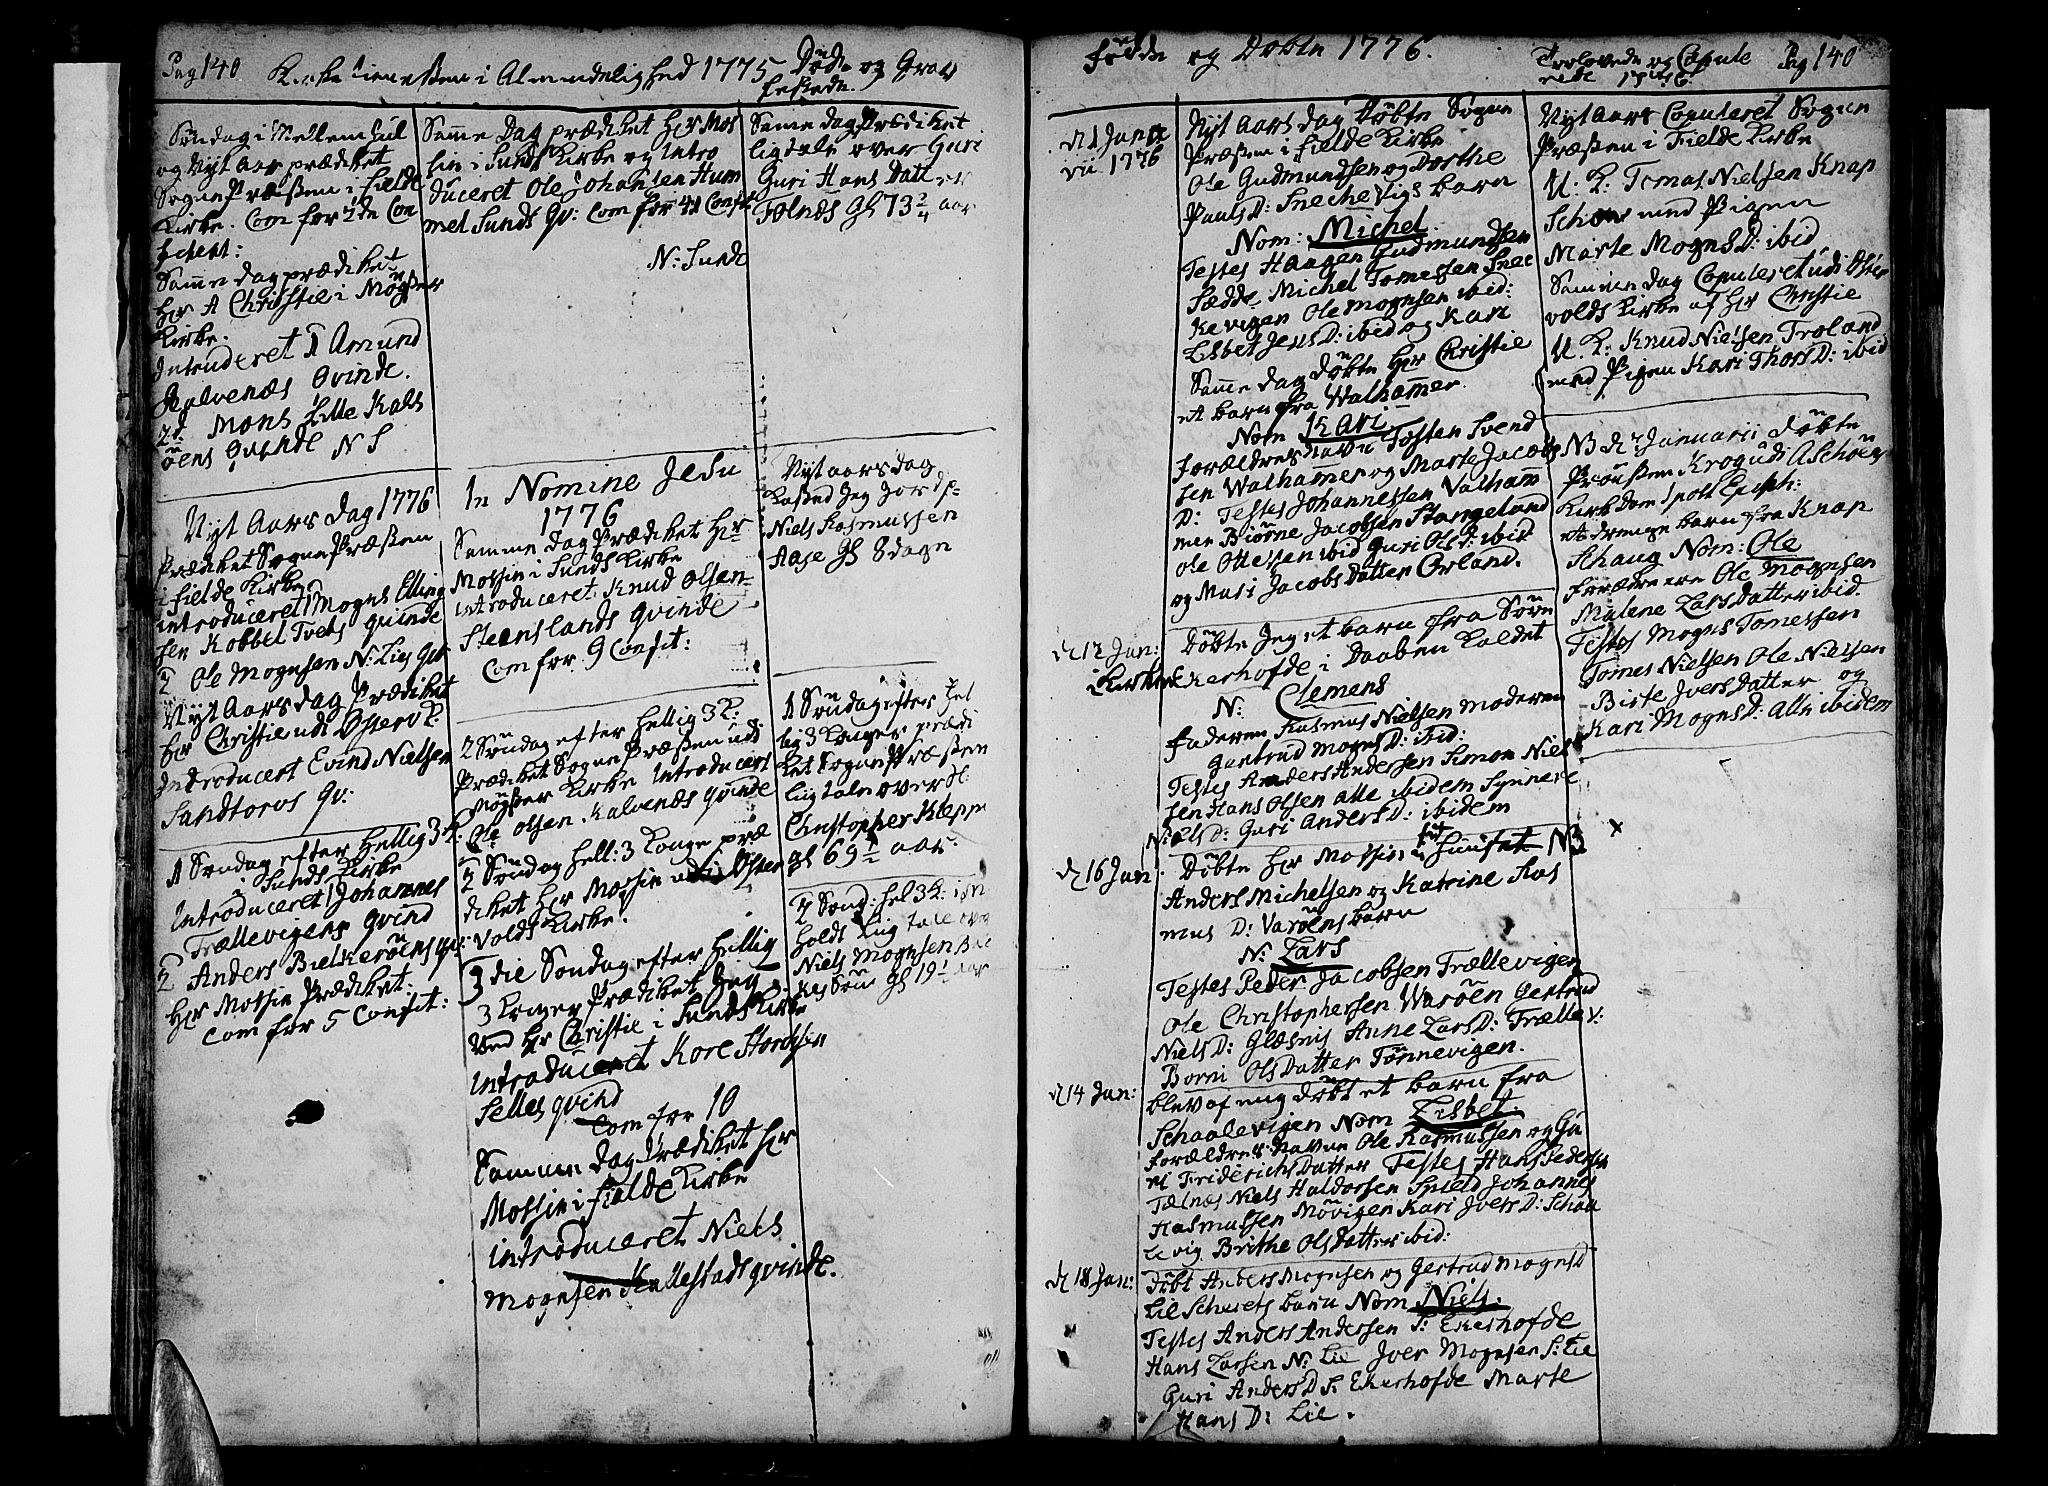 Pag 140
Kirke tienesten i Almindelighed 1775
Døde og Grav
festede.
Søndag i Mellem Jul
og Nyt Aar prædiket
Sogne Præsten i Fielde
Kirke. Com for
Samme dag prædiket
Hr A Christie i Møgster
Kirke.
Introducret 1 Amund
Kalvenæs Qvinde.
2d Mons Lille Kals
øens Qvinde N S
Nyt Aars Dag 1776
Prædiket Sogne Præsten
i Fielde Kirke
introduceret 1 Mogns Elling
sen Kobbel Tvets qvinde
2 Ole Mognsen N: Lies Qv:
Nyt Aars dag Prædiket
Hr Christie udi Østervk:
Introducert Evind Nielsen
Sandtorvs Qv:
1 Søndag efter Hellig 3 K:
i Sunds Kirke
Introduceret 1 Johannes
Trællevigens qvind
2 Anders Bielkerøens qv:
Hr Mossin Prædiket:
Com for 5 Confit:
Samme Dag prædiket Hr Mos
sin i Sunds Kirke og Intro
duceret Ole Johansen Hum
mel Sunds Qv: Com for 41 Confit
N: Sunde
In Nomine Jesu
1776
Samme dag Prædiket Hr
Mossin i Sunds Kirke
introduceret Knud Olsen
Steenslands qvinde
Com for 9 Confit:
2 Søndag efter Hellig 3 K:
Prædiket Sogne Præsten udi
Møgster Kirke Introducert
Ole Olsen Kalvenæs qvinde
2 Søndag Hell: 3 Konge præ
diket Hr Mossin udi Øster
volds Kirke.
3 die Søndag efter Hellig
3 Konger Prædiket Jeg
ved Hr Christie i Sunds Kirke
introduceret Kore Stordsen
Selles qvind
Com for 10
Samme dag Prædiket Hr
Mossin i Fielde Kirke
introduceret Niels
Mognsen Hallestads qvinde.
Samme dag Prædiket
ligtale over Guri
Guri Hans Datter
Tælnæs Gl 73 2/4 aar
Nyt aars dag
kasted Jeg Jord p:
Niels Rasmussen
Aase Gl 8 dage
1 Søndag efter Hel
lig 3 Konger prædi
ket Sogne Præsten
liigtale over
Christopher Klepp
gl 69 1/2 aar.
2 Sønd: Hel 3 K:
holdt Liig tale over
Niels Mognsen
gl 19 1/2 aar
Fødde og Døbte 1776.
Trolovede og Copule
rede 1776
Pag 140
d 1 Janua
rii 1776
Nyt Aars dag Døbte Sogne
Præsten i Fielde Kirke
Ole Gudmundsen og Dorthe
Pauls D: Snechevigs barn
Nom: Michel
Testes Haagen Gudmundsen
Sædde Michel Tomessen Snee
kevigen Ole Mognsen ibid:
Lisbet Jens D: ibid og Kari
Samme dag Døbte Hr Christie
et barn fra Walhammer.
Nom Kari
Forældrenes Navn Tosten Svend
sen Walhammer og Marte Jacobs
D: Testes Johannessen Valham
mer Biørne Jacobsen Stangeland
Ole Ottesen ibid Guri Ols D: ibid
og Mari Jacobs Datter Orland.
d 12 Jan:
i Kirken
Døbte Jeg et barn fra Søre
Ekerhofde i Daaben Kaldet
N: Clemens
Faderen Rasmus Nielsen Moderen
Gertrud Mogns D: ibid:
Testes Anders Andersen Simon Niel
sen Hans Olsen alle ibidem Synneve
Niels D: Guri Anders D: ibidem
d 16 Jan:
Døbte Hr Mossin i sit Huuset NB ×
Anders Michelsen og Katrine Ras
mus D: Varøens barn
N: Lars
Testes Peder Jacobsen Trællevigen
Ole Christophersen Warøen Gertrud
Niels D: Glæsnis Anne Lars D: Trællev:
Borni Ols Datter Tønnevigen.
d 14 Jan:
blev af mig døbt et barn fra
Schaalevigen Nom Lisbet.
Forældrenes Navne Ole Rasmussen og Gu
ri Friderichs Datter Testes Hans Pedersen
Tælnæs Niels Haldorsen Spield Johannes
Rasmussen Møvigen Kari Ivers D: Schaa
levig Brithe Ols Datter ibid:
d 18 Jan:
Døbt Anders Mognsen og Gertrud Mogns D
Lie Schurets barn Nom Niels.
Testes Anders Andersen S: Ekerhofde
Hans Larsen N: Lie Iver Mognsen S: Lie
Guri Anders D S: Ekerhofde Marte
Hans D: Lie.
Nyt Aars Copuleret Sogne
Præsten i Fielde Kirke
U: K: Tomas Nielsen Knap
Schou med Pigen
Marte Mogns D: ibid
Sammen dag Copuleret udi Øster
volds Kirke af Hr Christie
U. K: Knud Nielsen Troland
med Pigen Kari Thors D: ibid
NB d Januarii Døbte
Provsten Krog udi
et drenge barn fra Knap
Schaug Nom: Ole
Forældrene Ole Mognsen
Malene Lars Datter ibid.
Testes Mogns Tomessen
Tomes Nielsen Ole Nielsen
Birte Ivers Datter og
Kari Mogns D: alle ibidem